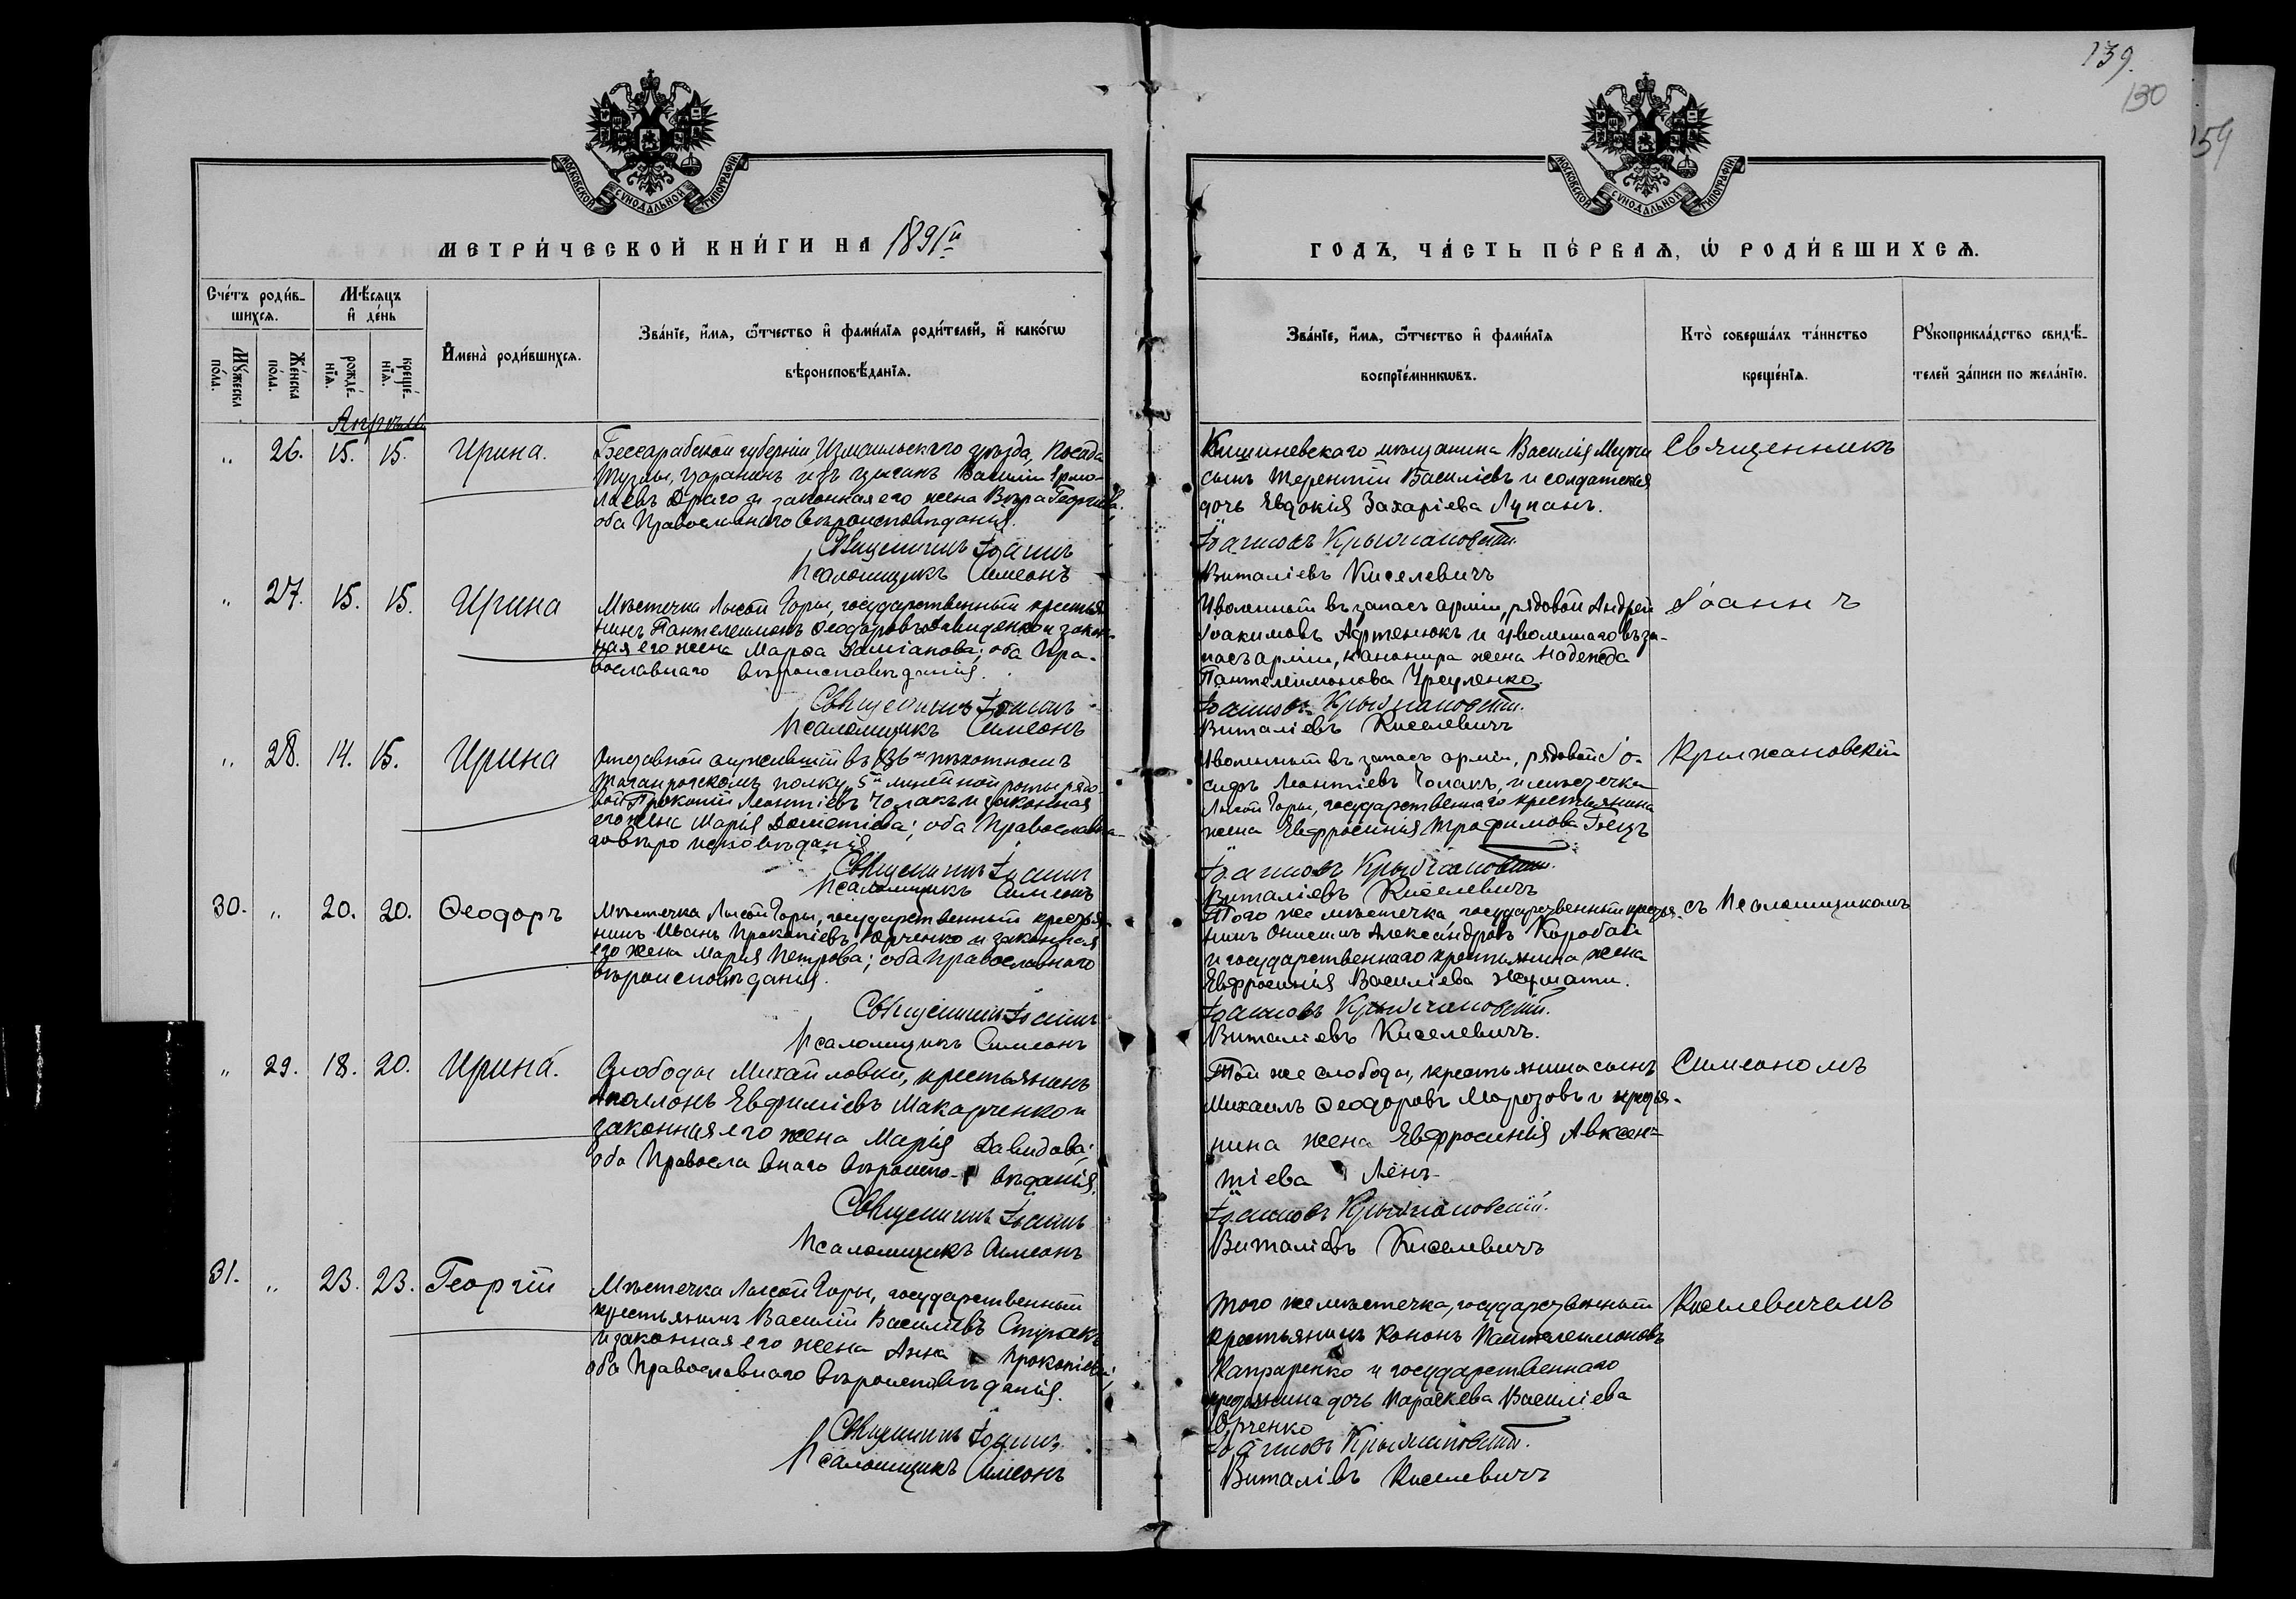 139.
130
159
МОСКОВСКОЙ СѴНОДАЛЬНОЙ ТИПОГРАФІИ
МОСКОВСКОЙ СѴНОДАЛЬНОЙ ТИПОГРАФІИ
МЕТРИ́ЧЕСКОЙ КНИ́ГИ НА 1891й
ГОДЪ, ЧА́СТЬ ПЕ́РВАѦ, Ѡ РОДИ́ВШИХСѦ.
Сче́тъ роди́в-
шихсѧ.
Мѣ́сѧцъ
и҆ де́нь
Мꙋ́жеска
по́ла.
Же́нска
по́ла.
рожде́-
нїѧ.
креще́-
нїѧ.
И҆мена̀ роди́вшихсѧ.
Зва́нїе, и҆́мѧ, ѻ҆́тчество и҆ фами́лїѧ роди́телей, и҆ како́гѡ
вѣроисповѣ́данїѧ.
Зва́нїе, и҆́мѧ, ѻ҆́тчество и҆ фами́лїѧ
воспрїе́мникѡвъ.
Кто̀ соверша́лъ та́инство
креще́нїѧ.
Рꙋкоприкла́дство свидѣ́-
телей за́писи по жела́нїю.
Апрѣль
„ 26. 15. 15. Ирина.
Бессарабской губерніи, Измаильскаго уѣзда, посада
Тузлы, царанинъ изъ цыганъ Василій Ермо-
лаевъ Драго и законная его жена Вѣра Георгіева;
оба Православнаго вѣроисповѣданія.
Священникъ Іоаннъ
Псаломщикъ Симеонъ
Кишиневскаго мѣщанина Василія
сынъ Терентій Василіевъ и солдатская
дочь Евдокія Захаріева Лупанъ.
Іоанновъ Крыжановскій.
Виталіевъ Киселевичъ
Священникъ
„ 27. 15. 15. Ирина
Мѣстечка Лысой Горы, государственный крестья-
нинъ Пантелеимонъ Ѳеодоровъ Давиденко и закон-
ная его жена Марѳа Даміанова; оба Пра-
вославнаго вѣроисповѣданія.
Священникъ Іоаннъ
Псаломщикъ Симеонъ
Уволенный въ запасъ арміи, рядовой Андрей
Іоакимовъ Афтенюкъ и уволеннаго въ за-
пасъ арміи, канонира жена Надежда
Пантелеимонова Урсуленко.
Іоанновъ Крыжановскій.
Виталіевъ Киселевичъ
Іоаннъ
„ 28. 14. 15. Ирина
Отставной служившій въ 136м пѣхотномъ
Таганрогскомъ полку, 5й линейной роты рядо-
вой Прокопій Леонтіевъ Чолакъ и законная
его жена Марія Дометіева; оба Православна-
го вѣроисповѣданія
Священникъ Іоаннъ
Псаломщикъ Симеонъ
Уволенный въ запасъ арміи, рядовой Іо-
сифъ Леонтіевъ Чолакъ, и мѣстечка
Лысой Горы, государственнаго крестьянина
жена Евфросинія Трофимова
Іоанновъ Крыжановскій.
Виталіевъ Киселевичъ
Крыжановскій
30. „ 20. 20. Ѳеодоръ
Мѣстечка Лысой Горы, государственный крестья-
нинъ Иванъ Прокопіевъ Юрченко и законная
его жена Марія Петрова; оба Православнаго
вѣроисповѣданія.
Священникъ Іоаннъ
Псаломщикъ Симеонъ
Того же мѣстечка, государственный крестья-
нинъ Онисимъ Александровъ Коробай
и государственнаго крестьянина жена
Евфросинія Василіева
Іоанновъ Крыжановскій.
Виталіевъ Киселевичъ.
съ Псаломщикомъ
„ 29. 18. 20. Ирина.
Слободы Михайловки, крестьянинъ
Аполлонъ Евфиміевъ Макарченко и
законная его жена Марія Давидова;
оба Православнаго вѣроиспо-вѣданія.
Священникъ Іоаннъ
Псаломщикъ Симеонъ
Той же слободы, крестьянина сынъ
Михаилъ Ѳеодоровъ Морозовъ и крестья-
нина жена Евфросинія Авксен-
тіева Лёнъ
Іоанновъ Крыжановскій.
Виталіевъ Киселевичъ
Симеономъ
31. „ 23. 23. Георгій
Мѣстечка Лысой Горы, государственный
крестьянинъ Василій Василіевъ
и законная его жена Анна Прокопіева;
оба Православнаго вѣроисповѣданія.
Священникъ Іоаннъ
Псаломщикъ Симеонъ
Того же мѣстечка, государственный
крестьянинъ Кононъ Пантелеимоновъ
и государственнаго
крестьянина дочь Параскева Василіева
Юрченко
Іоанновъ Крыжановскій.
Виталіевъ Киселевичъ
Киселевичемъ